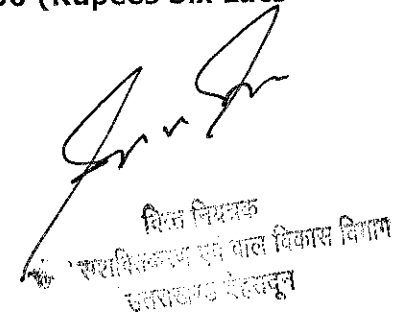 (Rupees Six Lacs
वित्त नियंत्रक
सशक्तिकरण एवं बाल विकास विभाग
उत्तराखण्ड देहरादून